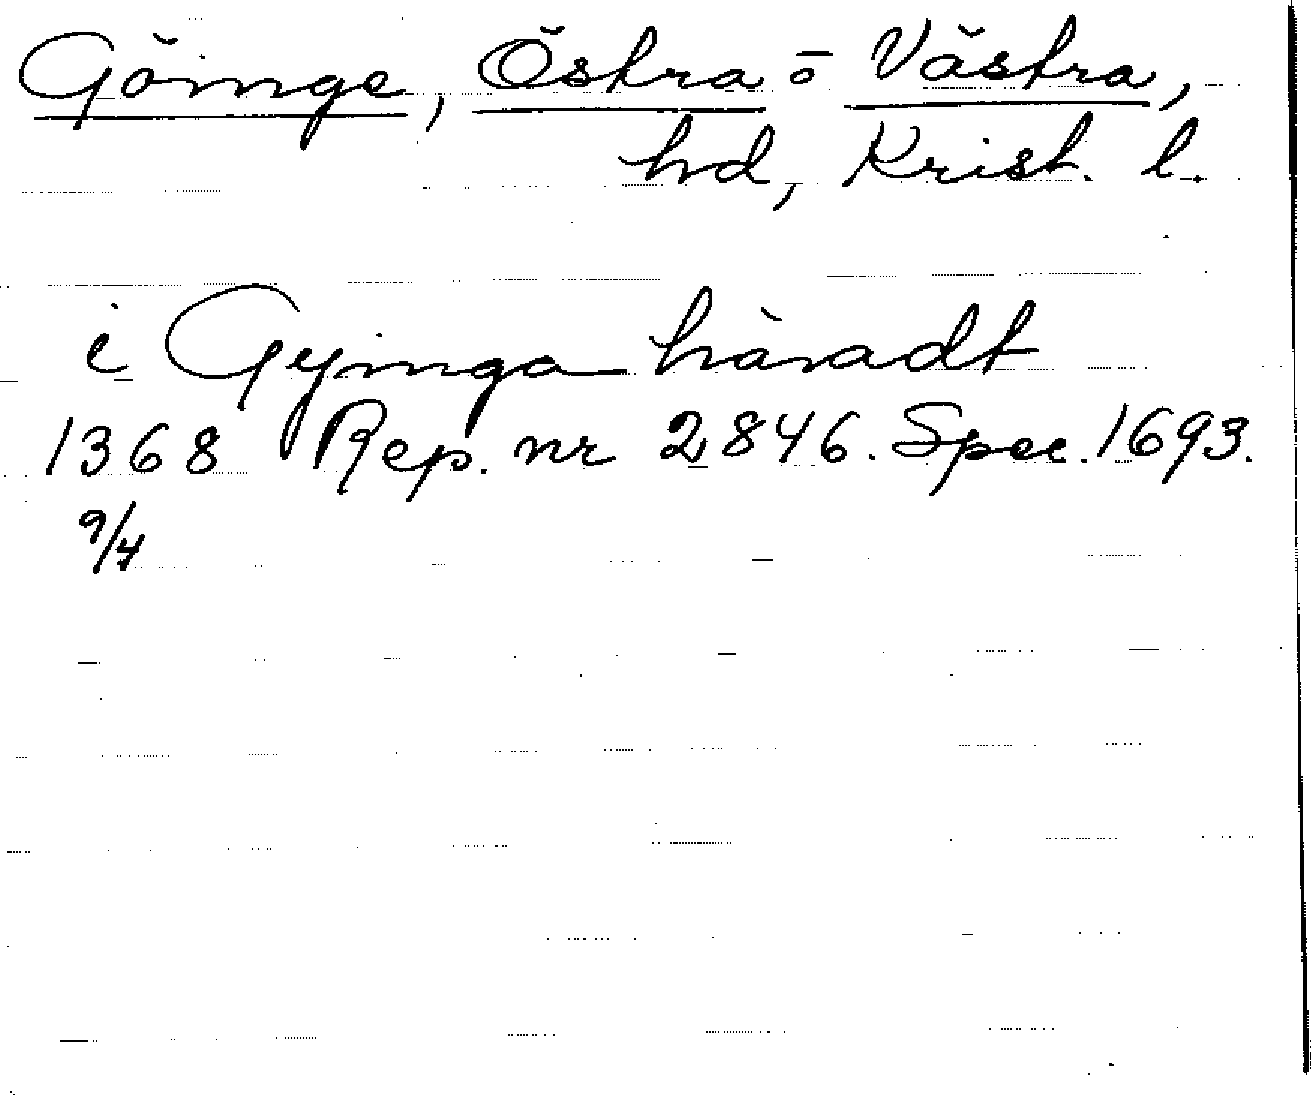 Göinge, Östra o Västra,
hd, Krist. l.
i Gyinga hàradt
1368 Rep. nr 2846. Spec. 1693.
9/4